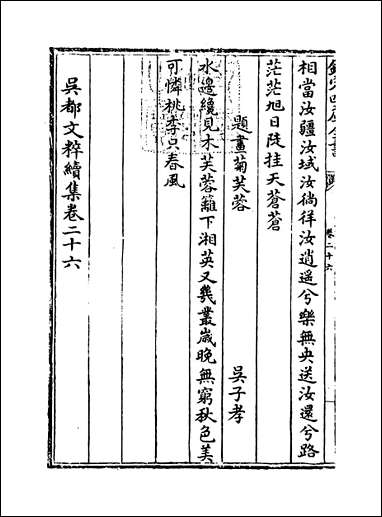 欽定四庫全書
卷二十六
相當汝疆汝域汝徜徉汝逍遥兮樂無央送汝還兮路
茫茫旭日陡挂天蒼蒼
題畫菊芙蓉
吳子孝
水邊纔見木芙蓉籬下湘英又幾叢歲晚無窮秋色美
可憐桃李只春風
吳都文粹續集卷二十六